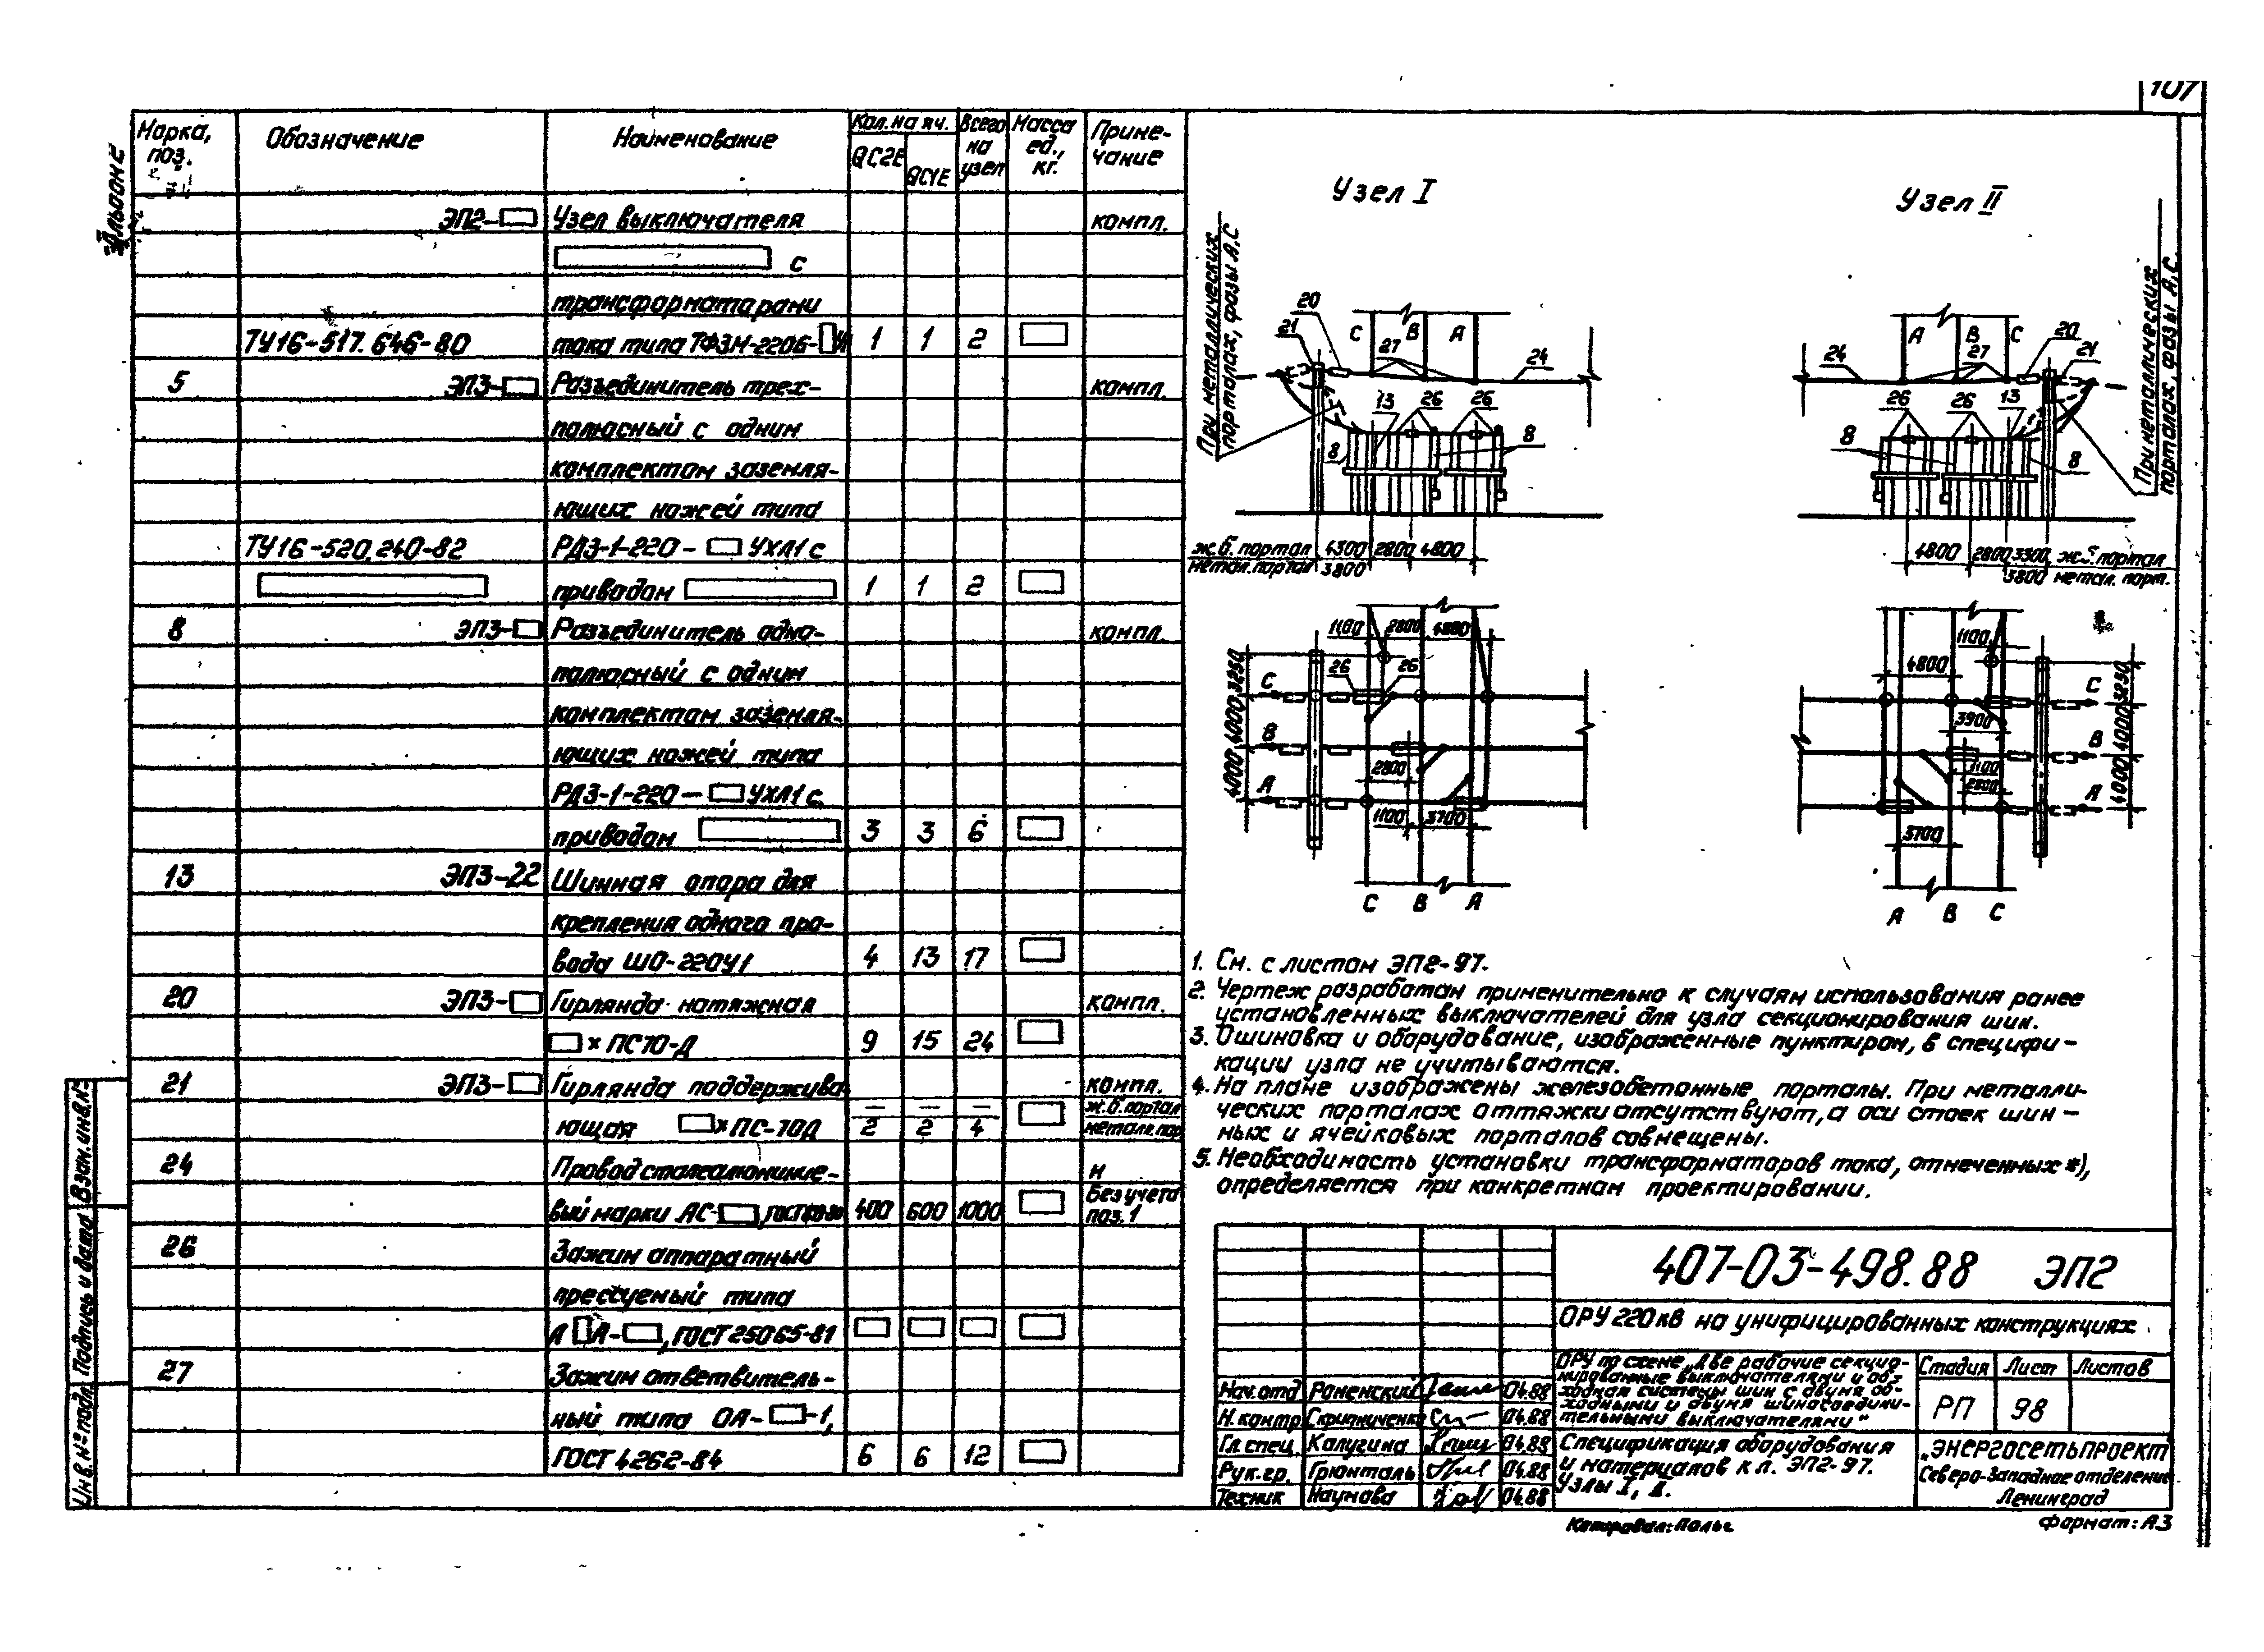 107
Альбом 2
Марка, поз.
Обозначение
Наименование
Кол. на яч.
QC2E
QC1E
Всего на узел
Масса ед., кг.
Приме-чание
ЭП2-□ Узел выключателя компл.
с
трансформаторами
ТУ16-517.646-80 тока типа ТФЗМ-220Б- 1 1 2
5 ЭП3-□ Разъединитель трех- компл.
полюсный с одним
комплектом заземля-
ющих ножей типа
ТУ16-520.240-82 РДЗ-1-220-□ УХЛ1 с
приводом 1 1 2
8 ЭП3-□ Разъединитель одно- компл.
полюсный с одним
комплектом заземля-
ющих ножей типа
РДЗ-1-220-□ УХЛ1 с
приводом 3 3 6
13 ЭП3-22 Шинная опора для
крепления одного про-
вода ШО-220У1 4 13 17
20 ЭП3-□ Гирлянда натяжная компл.
□ × ПС70-Д 9 15 24
21 ЭП3-□ Гирлянда поддержива- компл.
— — — ж.б. портал
ющая □×ПС-70Д 2 2 4 металл. пор
24 Провод сталеалюминие- м
вый марки АС-□, ГОСТ 400 600 1000 Без учета поз. 1
26 Зажим аппаратный
прессуемый типа
А□А-□, ГОСТ 25065-81
27 Зажим ответвитель-
ный типа ОА-□-1,
ГОСТ 4262-84 6 6 12
Узел I
При металлических порталах, фазы А,С
20
21
C B A
27
24
13 26 26
8 8
ж.б. портал 4300 2800 4800
метал. портал 3800
1100 2800 4800
26 26
3250
4000
4000
C
B
A
2800
1100 3700
C B A
Узел II
При металлических порталах, фазы А,С
A B C
20
21
24
27
26 26 13
8 8
4800 2800 3300 ж.б. портал
3800 метал. порт.
1100
4800
3900
1100
2800
3700
C
B
A
3250
4000
4000
A B C
1. См. с листом ЭП2-97.
2. Чертеж разработан применительно к случаям использования ранее
установленных выключателей для узла секционирования шин.
3. Ошиновка и оборудование, изображенные пунктиром, в специфи-
кации узла не учитываются.
4. На плане изображены железобетонные порталы. При металли-
ческих порталах оттяжки отсутствуют, а оси стоек шин-
ных и ячейковых порталов совмещены.
5. Необходимость установки трансформаторов тока, отмеченных *),
определяется при конкретном проектировании.
407-03-498.88 ЭП2
ОРУ 220 кВ на унифицированных конструкциях
ОРУ по схеме „Две рабочие секцио-
нированные выключателями и об-
ходная системы шин с двумя об-
ходными и двумя шиносоедини-
тельными выключателями"
Стадия Лист Листов
РП 98
Нач. отд Роменский 04.88
Н. контр. Скрипниченко 04.88
Гл. спец. Калугина 04.88
Рук. гр. Грюнталь 04.88
Техник Наумова 04.88
Спецификация оборудования
и материалов к л. ЭП2-97.
Узлы I, II.
„ЭНЕРГОСЕТЬПРОЕКТ
Северо-Западное отделение
Ленинград
Копировал:
формат: А3
Инв. № подл.
Подпись и дата
Взам. инв. №